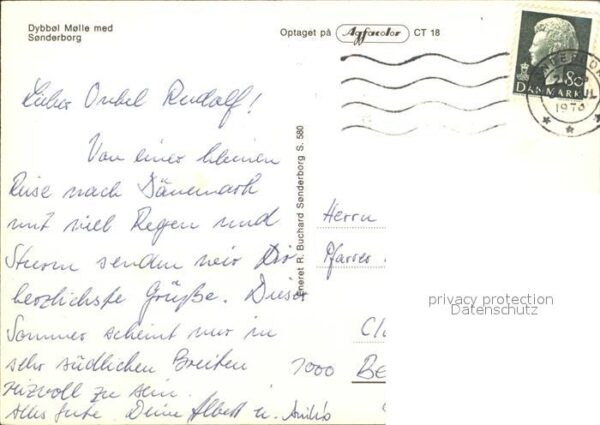 Dybbøl Mølle med
Sønderborg
Optaget på Agfacolor CT 18
80
DANMARK
Lieber Onkel Rudolf!
Von einer kleinen
Reise nach Dänemark
mit viel Regen und
Sturm senden wir Dir
herzlichste Grüße. Dieser
Sommer scheint nur in
sehr südlichen Breiten
reizvoll zu sein.
Alles Gute. Deine Albert u.
Eneret R. Buchard Sønderborg S. 580
Herrn
Pfarrer
1000 BE
privacy protection
Datenschutz